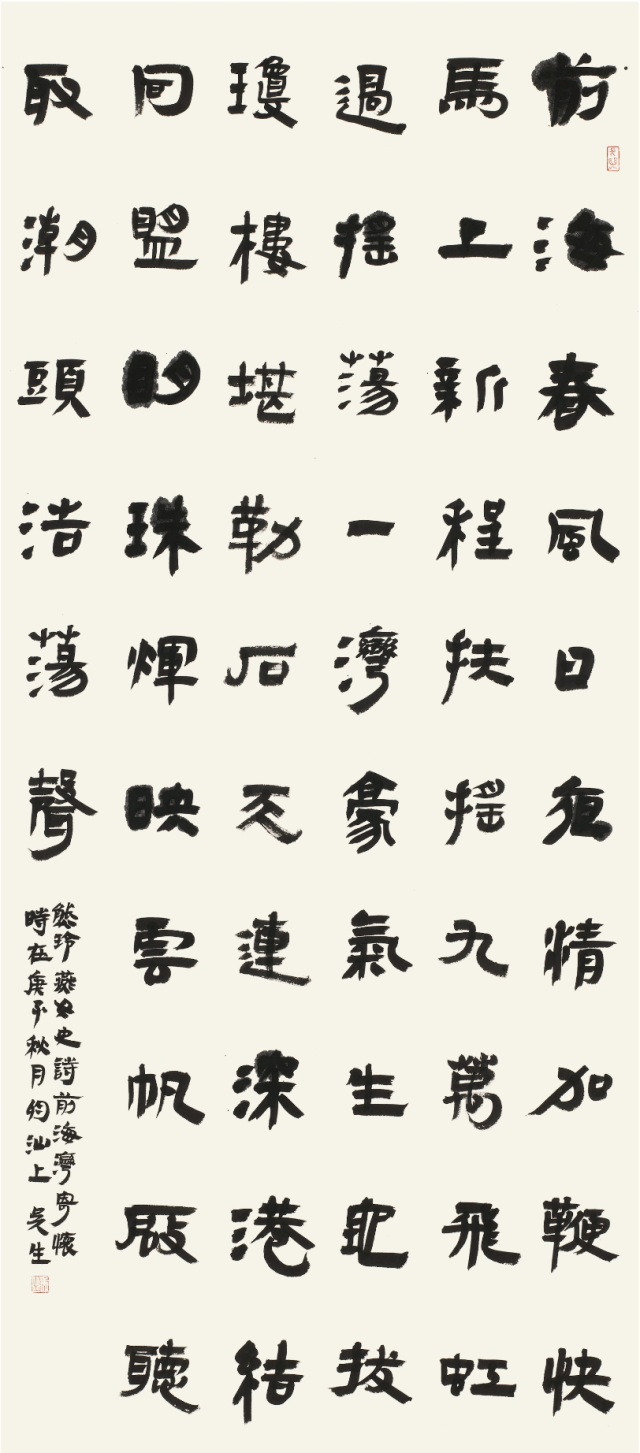 前海春風日夜情加鞭快
馬上新程扶搖九萬飛虹
過搖蕩一灣豪氣生地拔
瓊樓堪勒石天連深港結
同盟明珠輝映雲帆啟聽
取潮頭浩蕩聲
詩前海灣寄懷
時在庚子秋月汕上